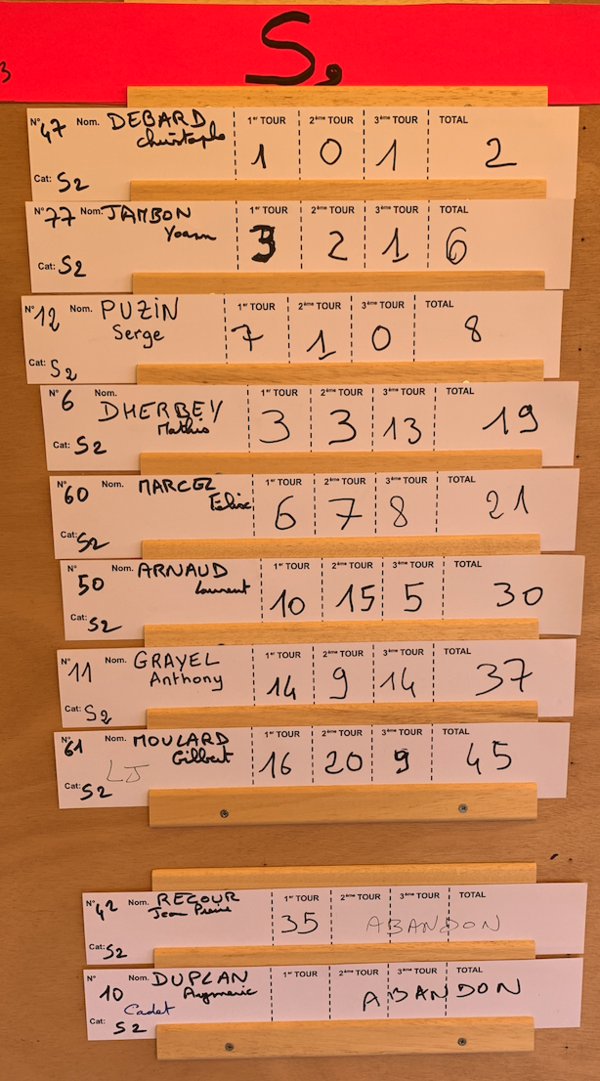 3
S2
N° 47 Nom. DEBARD 1er TOUR 2ème TOUR 3ème TOUR TOTAL
Christophe 1 0 1 2
Cat: S2
N° 77 Nom. JAMBON 1er TOUR 2ème TOUR 3ème TOUR TOTAL
Yoann 3 2 1 6
Cat: S2
N° 12 Nom. PUZIN 1er TOUR 2ème TOUR 3ème TOUR TOTAL
Serge 7 1 0 8
Cat: S2
N° 6 Nom. DHERBEY 1er TOUR 2ème TOUR 3ème TOUR TOTAL
Mathis 3 3 13 19
Cat: S2
N° 60 Nom. MARCEL 1er TOUR 2ème TOUR 3ème TOUR TOTAL
Félix 6 7 8 21
Cat: S2
N° 50 Nom. ARNAUD 1er TOUR 2ème TOUR 3ème TOUR TOTAL
Laurent 10 15 5 30
Cat: S2
N° 11 Nom. GRAYEL 1er TOUR 2ème TOUR 3ème TOUR TOTAL
Anthony 14 9 14 37
Cat: S2
N° 61 Nom. MOULARD 1er TOUR 2ème TOUR 3ème TOUR TOTAL
LJ Gilbert 16 20 9 45
Cat: S2
N° 42 Nom. RECOUR 1er TOUR 2ème TOUR 3ème TOUR TOTAL
Jean Pierre 35 ABANDON
Cat: S2
N° 10 Nom. DUPLAN 1er TOUR 2ème TOUR 3ème TOUR TOTAL
Aymeric ABANDON
Cadet
Cat: S2